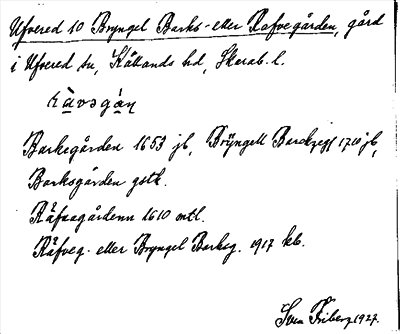 Ufvered 10 Bryngel Barks- eller Rafvegården, gård
i Ufvered sn, Kållands hd, Skarab. l.
rä̀vəgán
Barkegården 1653 jb, Bryngell Barckzeg 1710 jb,
Barksgården gstk.
Räfvagårdenn 1610 mtl.
Räfveg. eller Bryngel Barksg. 1917 kb.
Sven Friberg 1927.